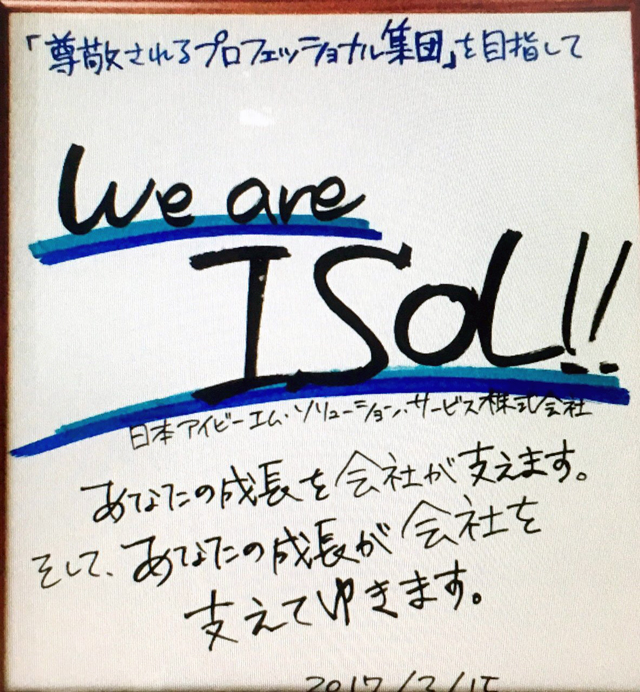 「尊敬されるプロフェッショナル集団」を目指して
We are
ISOL!!
日本アイビーエム・ソリューション・サービス株式会社
あなたの成長を会社が支えます。
そして、あなたの成長が会社を
支えてゆきます。